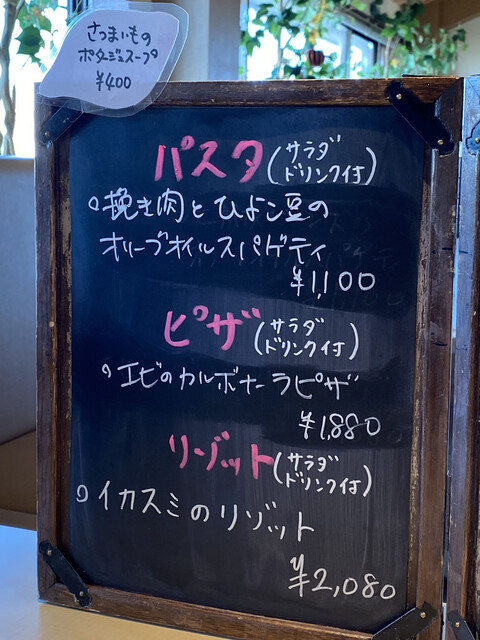 さつまいもの
ポタージュスープ
¥400
パスタ(サラダ
ドリンク付)
○挽き肉とひよこ豆の
オリーブオイルスパゲティ
¥1,100
ピザ(サラダ
ドリンク付)
○エビのカルボナーラピザ
¥1,880
リゾット(サラダ
ドリンク付)
○イカスミのリゾット
¥2,080